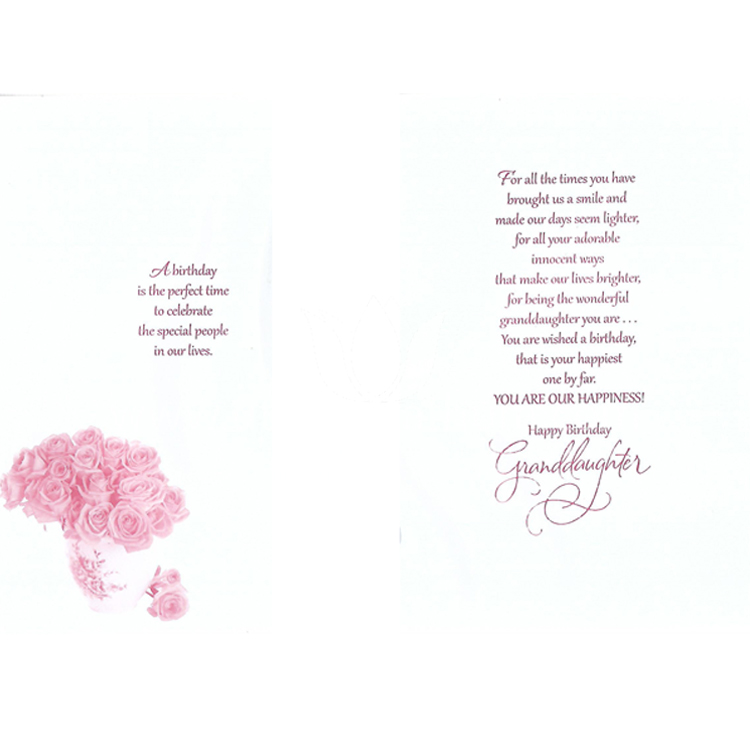 A birthday
is the perfect time
to celebrate
the special people
in our lives.
For all the times you have
brought us a smile and
made our days seem lighter,
for all your adorable
innocent ways
that make our lives brighter,
for being the wonderful
granddaughter you are . . .
You are wished a birthday,
that is your happiest
one by far.
YOU ARE OUR HAPPINESS!
Happy Birthday
Granddaughter